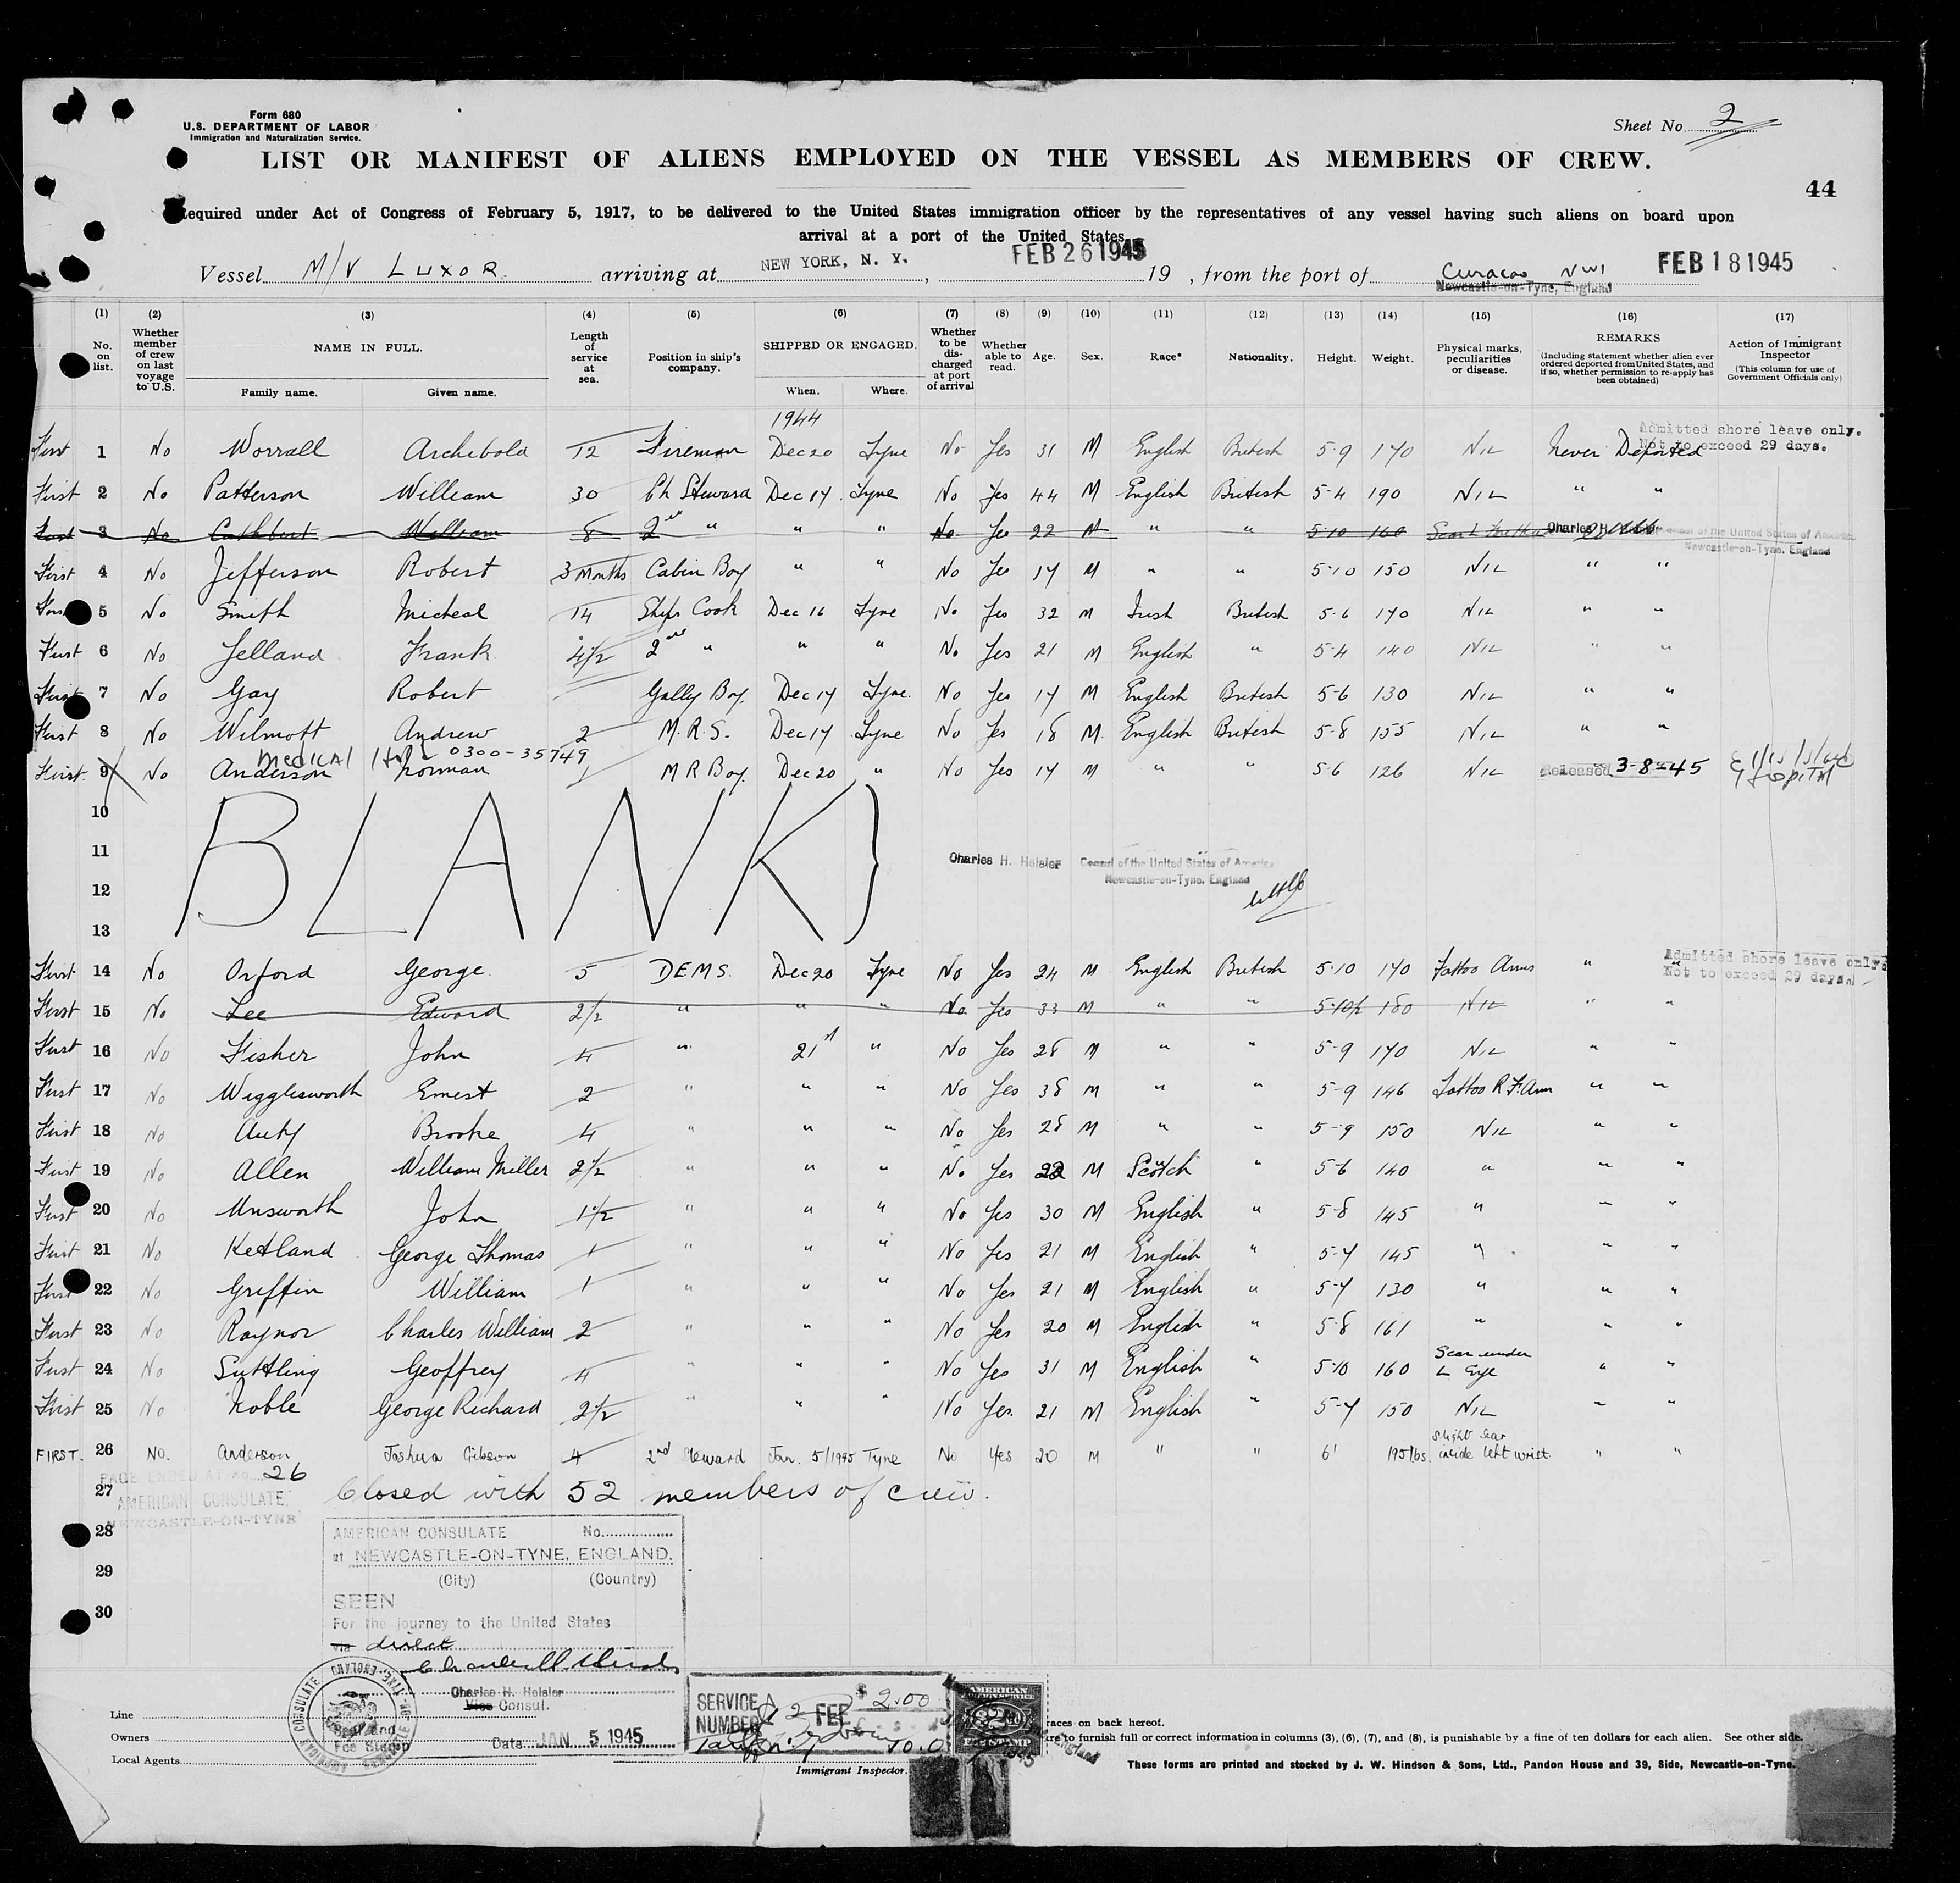 Form 680
U.S. DEPARTMENT OF LABOR
Immigration and Naturalization Service.
Sheet No. 2
LIST OR MANIFEST OF ALIENS EMPLOYED ON THE VESSEL AS MEMBERS OF CREW.
44
Required under Act of Congress of February 5, 1917, to be delivered to the United States immigration officer by the representatives of any vessel having such aliens on board upon
arrival at a port of the United States.
Vessel M/V LUXOR arriving at NEW YORK, N. Y., FEB 26 1945 19 , from the port of Curacao NWI Newcastle-on-Tyne, England FEB 18 1945
(1) No. on list.
(2) Whether member of crew on last voyage to U.S.
(3) NAME IN FULL. Family name. Given name.
(4) Length of service at sea.
(5) Position in ship's company.
(6) SHIPPED OR ENGAGED. When. Where.
(7) Whether to be discharged at port of arrival
(8) Whether able to read.
(9) Age.
(10) Sex.
(11) Race*
(12) Nationality.
(13) Height.
(14) Weight.
(15) Physical marks, peculiarities or disease.
(16) REMARKS (Including statement whether alien ever ordered deported from United States, and if so, whether permission to re-apply has been obtained)
(17) Action of Immigrant Inspector (This column for use of Government Officials only)
1944
Admitted shore leave only.
Not to exceed 29 days.
First 1 No Worrall Archibold 12 Fireman Dec 20 Tyne No Yes 31 M English British 5-9 170 Nil Never Deported
First 2 No Patterson William 30 Ch Steward Dec 17 Tyne No Yes 44 M English British 5-4 190 NIL " "
First 3 No Cuthbert William 8 2nd " " " No Yes 22 M " " 5-10 160 Charles H. Heisler Consul of the United States of America
Newcastle-on-Tyne, England
First 4 No Jefferson Robert 3 Months Cabin Boy " " No Yes 17 M " " 5-10 150 NIL " "
First 5 No Smith Micheal 14 Ships Cook Dec 16 Tyne No Yes 32 M Irish British 5-6 170 NIL " "
First 6 No Jelland Frank 4½ 2nd " " " No Yes 21 M English " 5-4 140 NIL " "
First 7 No Gay Robert Gally Boy. Dec 17 Tyne. No Yes 17 M English British 5-6 130 NIL " "
First 8 No Wilmott Andrew 2 M.R.S. Dec 17 Tyne No Yes 18 M. English British 5-8 155 NIL " "
Medical 0300-35749
First 9 No Anderson Norman 1 M R Boy. Dec 20 " No Yes 17 M " " 5-6 126 NIL Released 3-8-45 Hospital
10
11
12
13
BLANK }
Charles H. Heisler Consul of the United States of America
Newcastle-on-Tyne, England
Admitted shore leave only
Not to exceed 29 days.
First 14 No Orford George 5 DEMS. Dec 20 Tyne No Yes 24 M English British 5-10 170 Tattoo Arms " "
First 15 No Lee Edward 2½ " " " No Yes 33 M " " 5-10½ 180 NIL " "
First 16 No Fisher John 4 " 21st " No Yes 28 M " " 5-9 170 NIL " "
First 17 No Wigglesworth Ernest 2 " " " No Yes 38 M " " 5-9 146 Tattoo R F. Arm " "
First 18 No Auty Brooke 4 " " " No Yes 28 M " " 5-9 150 NIL " "
First 19 No Allen William Miller 2½ " " " No Yes 22 M Scotch " 5-6 140 " " "
First 20 No Unsworth John 1½ " " " No Yes 30 M English " 5-8 145 " " "
First 21 No Ketland George Thomas 1 " " " No Yes 21 M English " 5-7 145 " " "
First 22 No Griffin William 1 " " " No Yes 21 M English " 5-7 130 " " "
First 23 No Raynor Charles William 2 " " " No Yes 20 M English " 5-8 161 " " "
First 24 No Suttling Geoffrey 4 " " " No Yes 31 M English " 5-10 160 Scar under L Eye " "
First 25 No Noble George Richard 2½ " " " No Yes. 21 M English " 5-7 150 NIL " "
FIRST. 26 No. Anderson Joshua Gibson 4 2nd Steward Jan. 5/1945 Tyne No Yes 20 M " " 6' 195 lbs. slight scar inside left wrist. " "
PAGE ENDED AT No. 26
27 Closed with 52 members of crew.
AMERICAN CONSULATE
NEWCASTLE-ON-TYNE
28
29
30
AMERICAN CONSULATE No.
at NEWCASTLE-ON-TYNE, ENGLAND.
(City) (Country)
SEEN
For the journey to the United States
via direct
Charles H. Heisler
Vice Consul.
Seal and
Fee Stamp
Date JAN 5 1945
AMERICAN CONSULATE NEWCASTLE-ON-TYNE, ENGLAND
SERVICE NUMBER FEE $ 2.00
AMERICAN
FEE STAMP
Line
Owners
Local Agents
Immigrant Inspector.
races on back hereof.
ure to furnish full or correct information in columns (3), (6), (7), and (8), is punishable by a fine of ten dollars for each alien. See other side.
These forms are printed and stocked by J. W. Hindson & Sons, Ltd., Pandon House and 39, Side, Newcastle-on-Tyne.